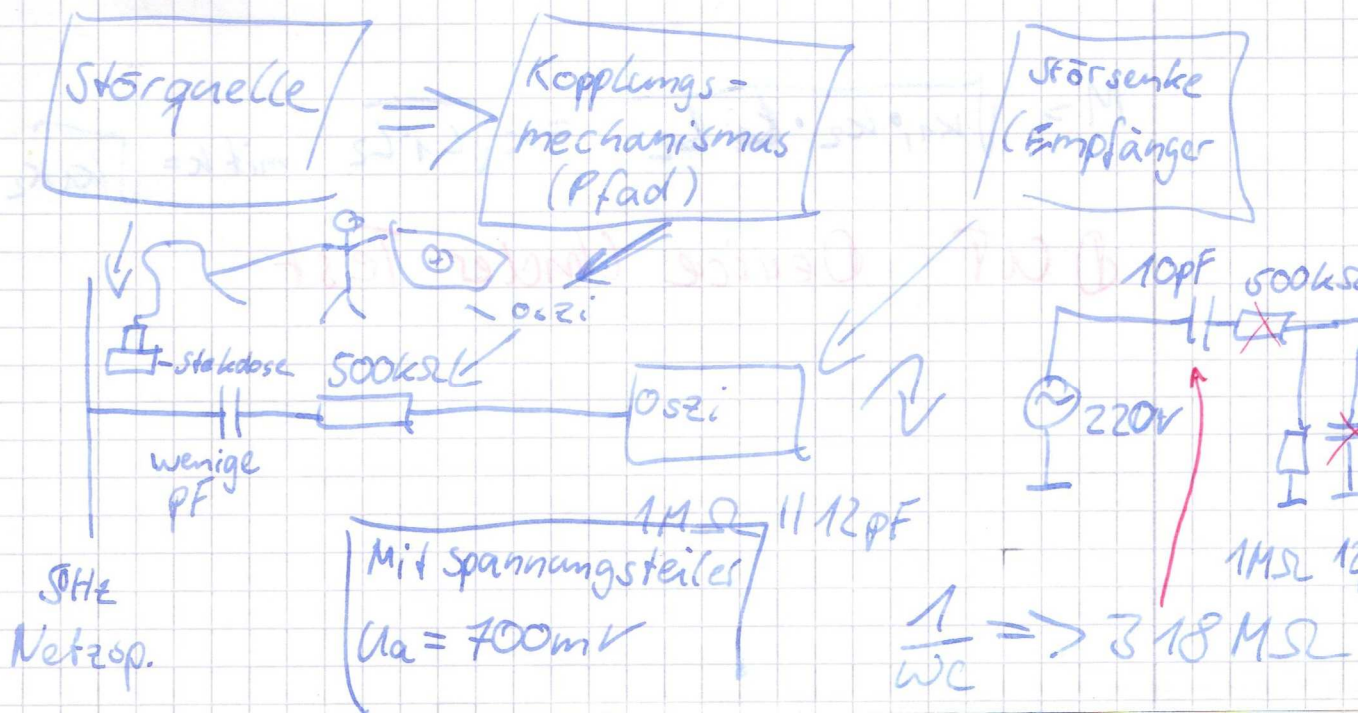 Störquelle
=>
Kopplungs-
mechanismus
(Pfad)
Störsenke
(Empfänger
oszi
Stekdose
500kΩ
wenige
pF
Oszi
1MΩ || 12pF
50Hz
Netzsp.
Mit Spannungsteiler
Ua = 700mV
10pF
500kΩ
220V
1MΩ
12
1/ωC => 318 MΩ